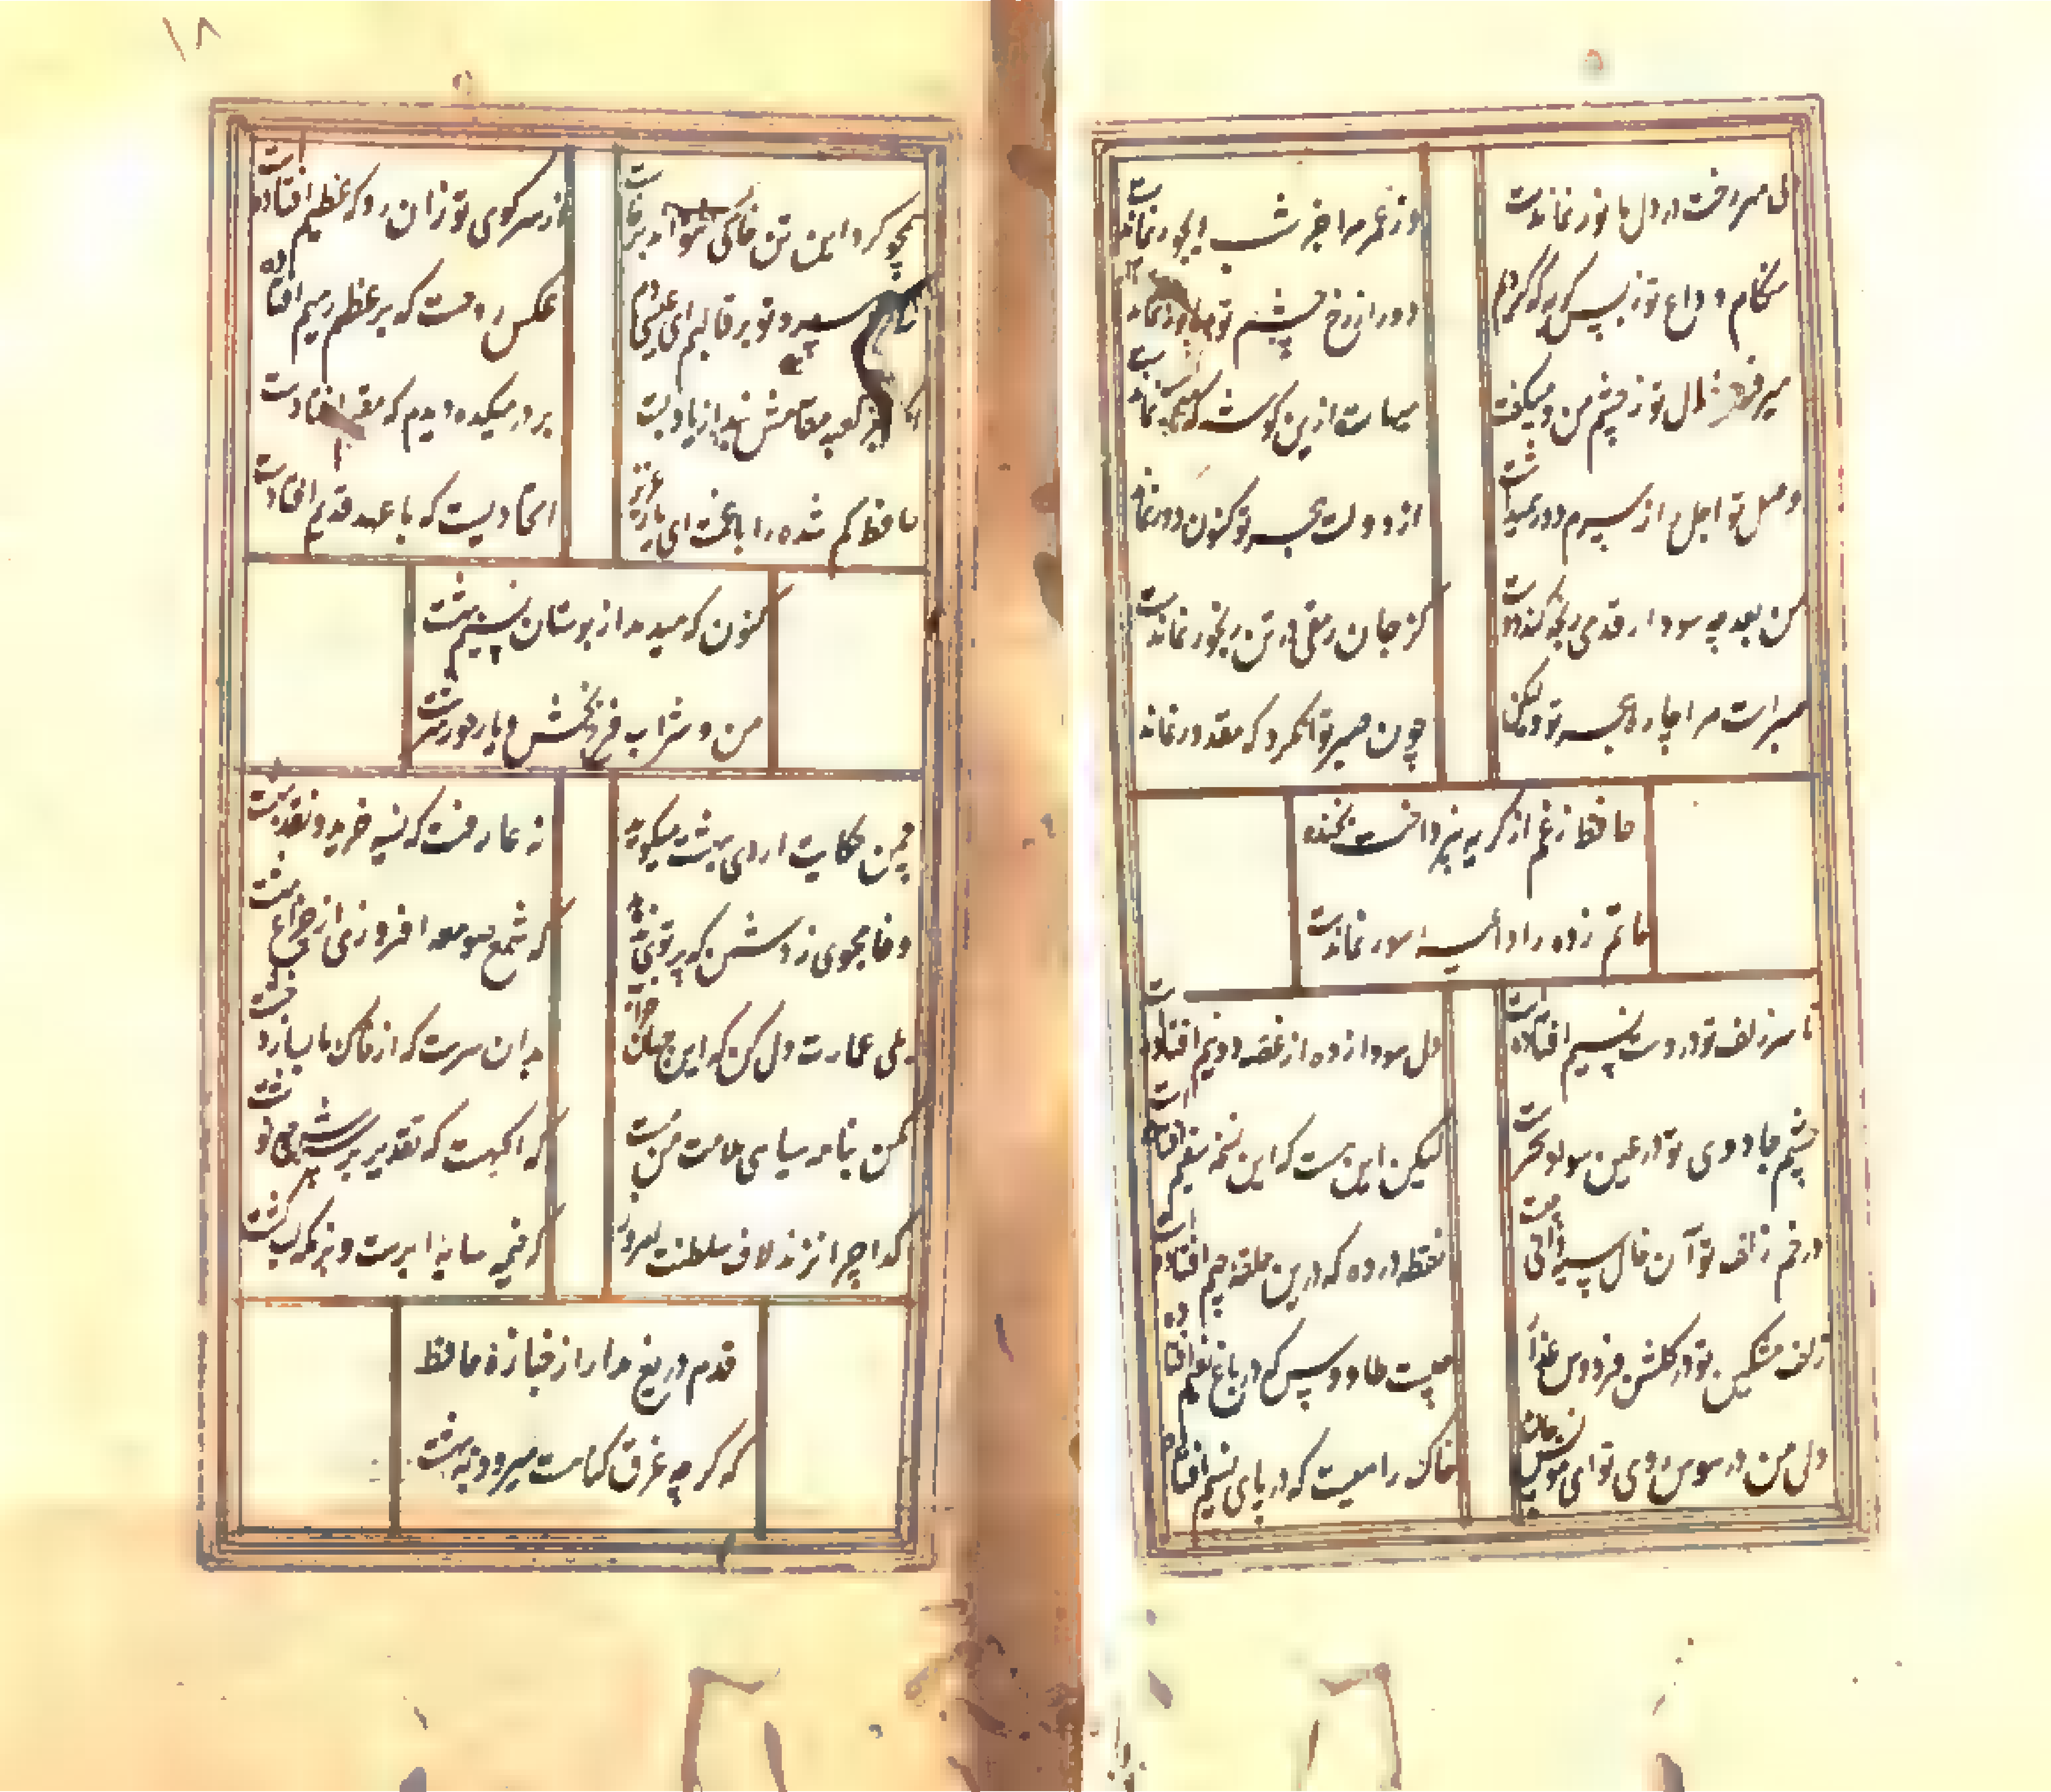 بی مهر رخت در دل ما نور نماندست
وز عمر مرا جز شب دیجور نماندست
هنگام وداع تو ز بس گریه که کردم
دور از رخ چشم تو مرا نور نماند
میرفت خیال تو ز چشم من و میگفت
هیهات ازین گوشه که معمور نماندست
وصل تو اجل را ز سرم دور همیداشت
از دولت هجر تو کنون دور نماند
من بعد چه سود ار قدمی رنجه کند دوست
کز جان رمقی در تن رنجور نماندست
صبر است مرا چاره هجر تو ولیکن
چون صبر توان کرد که مقدور نماند
حافظ ز غم از گریه نپرداخت بخنده
ماتم زده را داعیه سور نماندست
تا سر زلف تو در دست نسیم افتادست
دل سودازده از غصه دو نیم افتادست
چشم جادوی تو در عین سواد سحرست
لیکن این هست که این نسخه سقیم افتادست
در خم زلف تو آن خال سیه دانی چیست
نقطه دوده که در حلقه جیم افتادست
زلف مشکین تو در گلشن فردوس عذار
چیست طاووس که در باغ نعیم افتاده
دل من در هوس روی تو ای مونس جان
خاک راهیست که در پای نسیم افتاد
همچو گرد این تن خاکی نتواند برخاست
از سر کوی تو زان رو که عظیم افتادست
سایه سرو تو بر قالبم ای عیسی دم
عکس روحست که بر عظم رمیم افتاده
آنکه جز کعبه مقامش نبد از یاد لبت
بر در میکده دیدم که مقیم افتادست
حافظ گم شده را با غمت ای یار عزیز
اتحادیست که با عهد قدیم افتادست
کنون که میدمد از بوستان نسیم بهشت
من و شراب فرح بخش و یار حورسرشت
چمن حکایت اردی بهشت میگوید
نه عارفست که نسیه خرید و نقد بهشت
وفا مجوی ز دشمن که پرتوی ندهد
که شمع صومعه افروزی از چراغ کنشت
بمی عمارت دل کن که این جهان خراب
بدان سرست که از خاک ما بسازد خشت
مکن بنامه سیاهی ملامت من مست
که آگهست که تقدیر بر سرش چه نوشت
گدا چرا نزند لاف سلطنت امروز
که خیمه سایه ابرست و بزمگه لب کشت
قدم دریغ مدار از جنازه حافظ
که گرچه غرق گناهست میرود به بهشت
۱۸